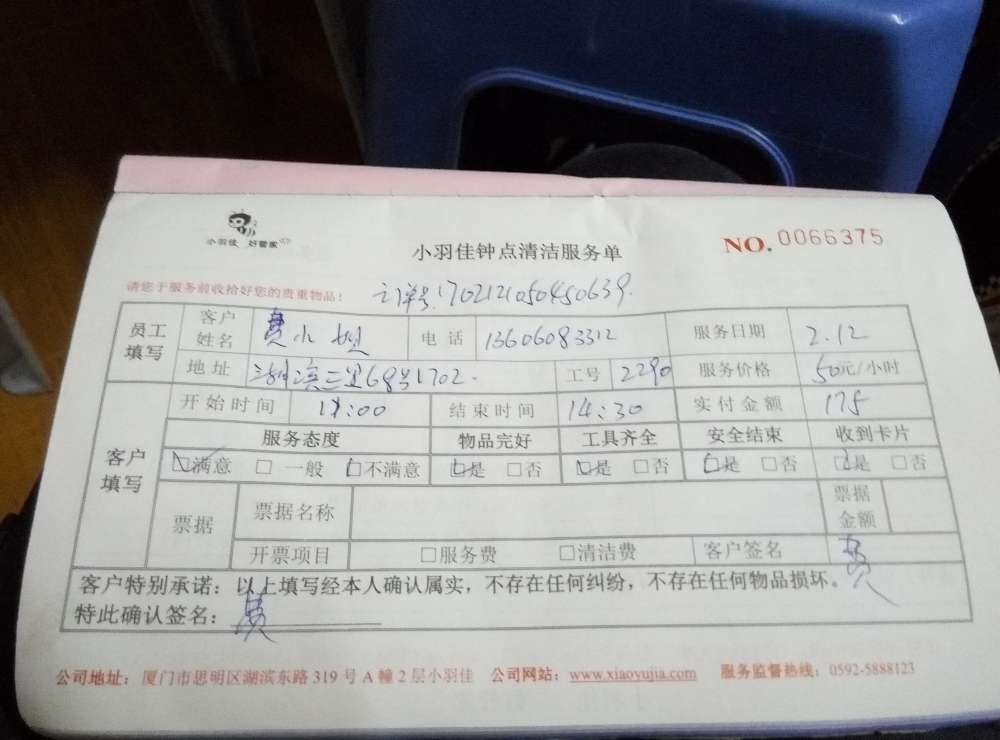 小羽佳 好管家
小羽佳钟点清洁服务单
NO.0066375
请您于服务前收拾好您的贵重物品!
订单号:1702121050450639
员工填写
客户姓名 费小姐 电话 13606083312 服务日期 2.12
地址 湖滨三里68号1702. 工号 2290 服务价格 50元/小时
客户填写
开始时间 11:00 结束时间 14:30 实付金额 175
服务态度 物品完好 工具齐全 安全结束 收到卡片
□满意 □一般 □不满意 □是 □否 □是 □否 □是 □否 □是 □否
票据 票据名称 票据金额
开票项目 □服务费 □清洁费 客户签名 费
客户特别承诺:以上填写经本人确认属实,不存在任何纠纷,不存在任何物品损坏。
特此确认签名: 费
公司地址:厦门市思明区湖滨东路319号A幢2层小羽佳 公司网站:www.xiaoyujia.com 服务监督热线:0592-5888123